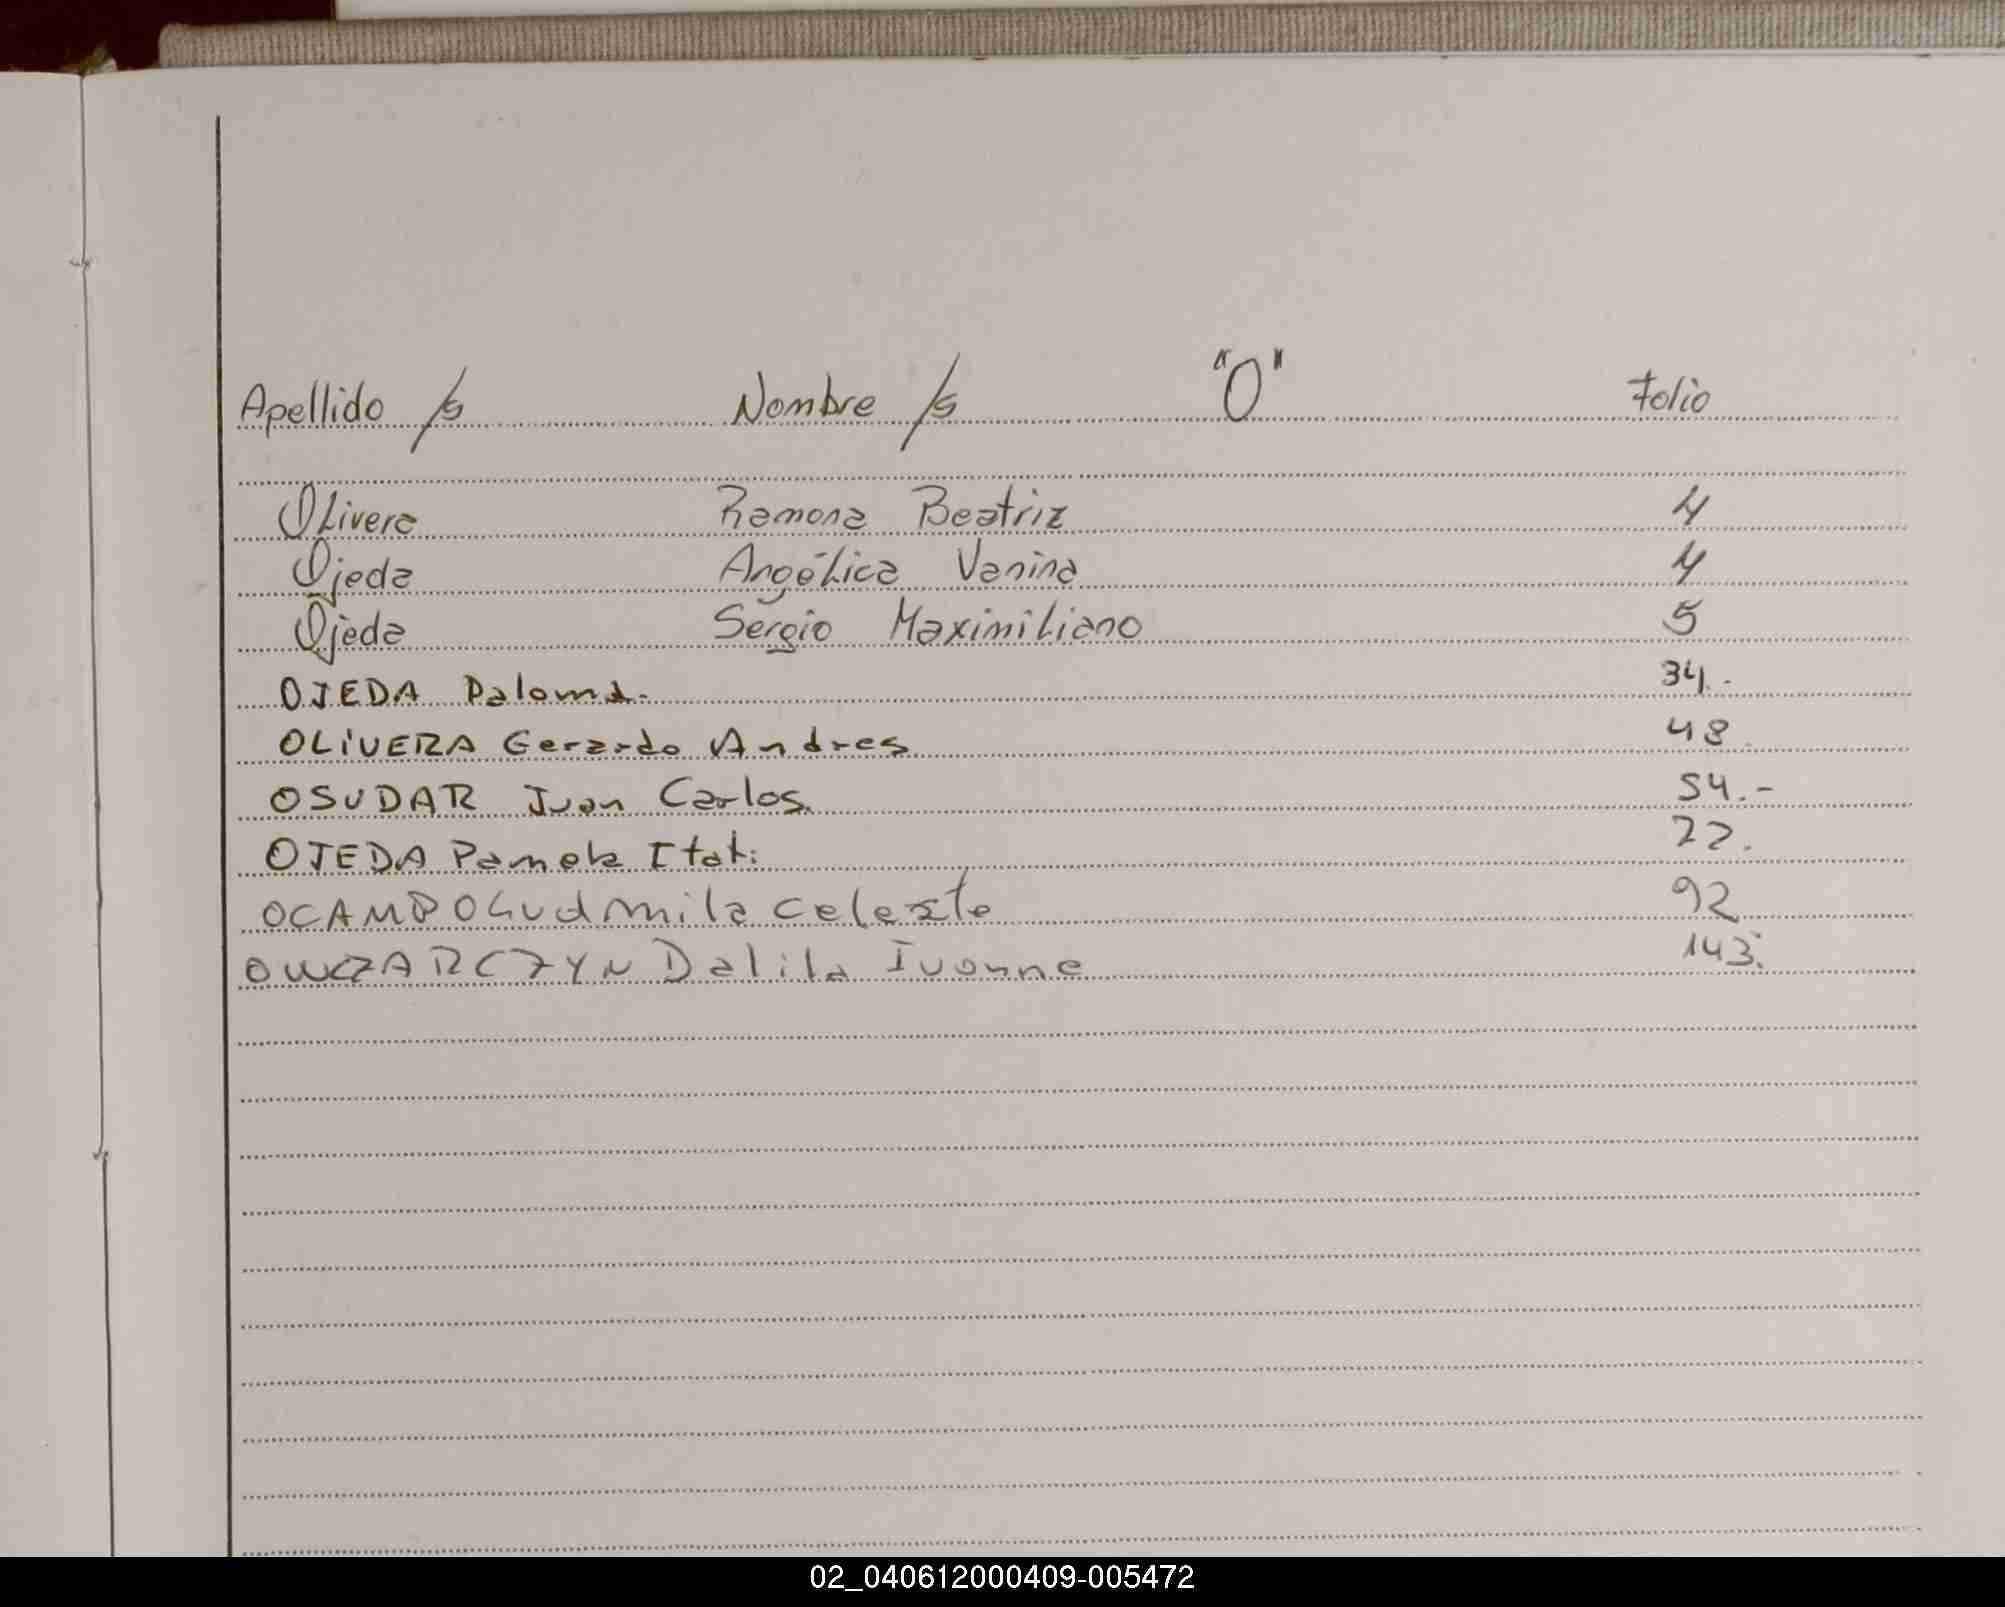 Apellido /s Nombre /s "O" Folio
Olivera Ramona Beatriz 4
Ojeda Angélica Vanina 4
Ojeda Sergio Maximiliano 5
OJEDA Paloma.- 34.-
OLIVERA Gerardo Andres 48.
OSUDAR Juan Carlos. 54.-
OJEDA Pamela Itati 22.
OCAMPO Ludmila Celeste 92
OWCZARCZYN Dalila Ivonne 143.
02_040612000409-005472